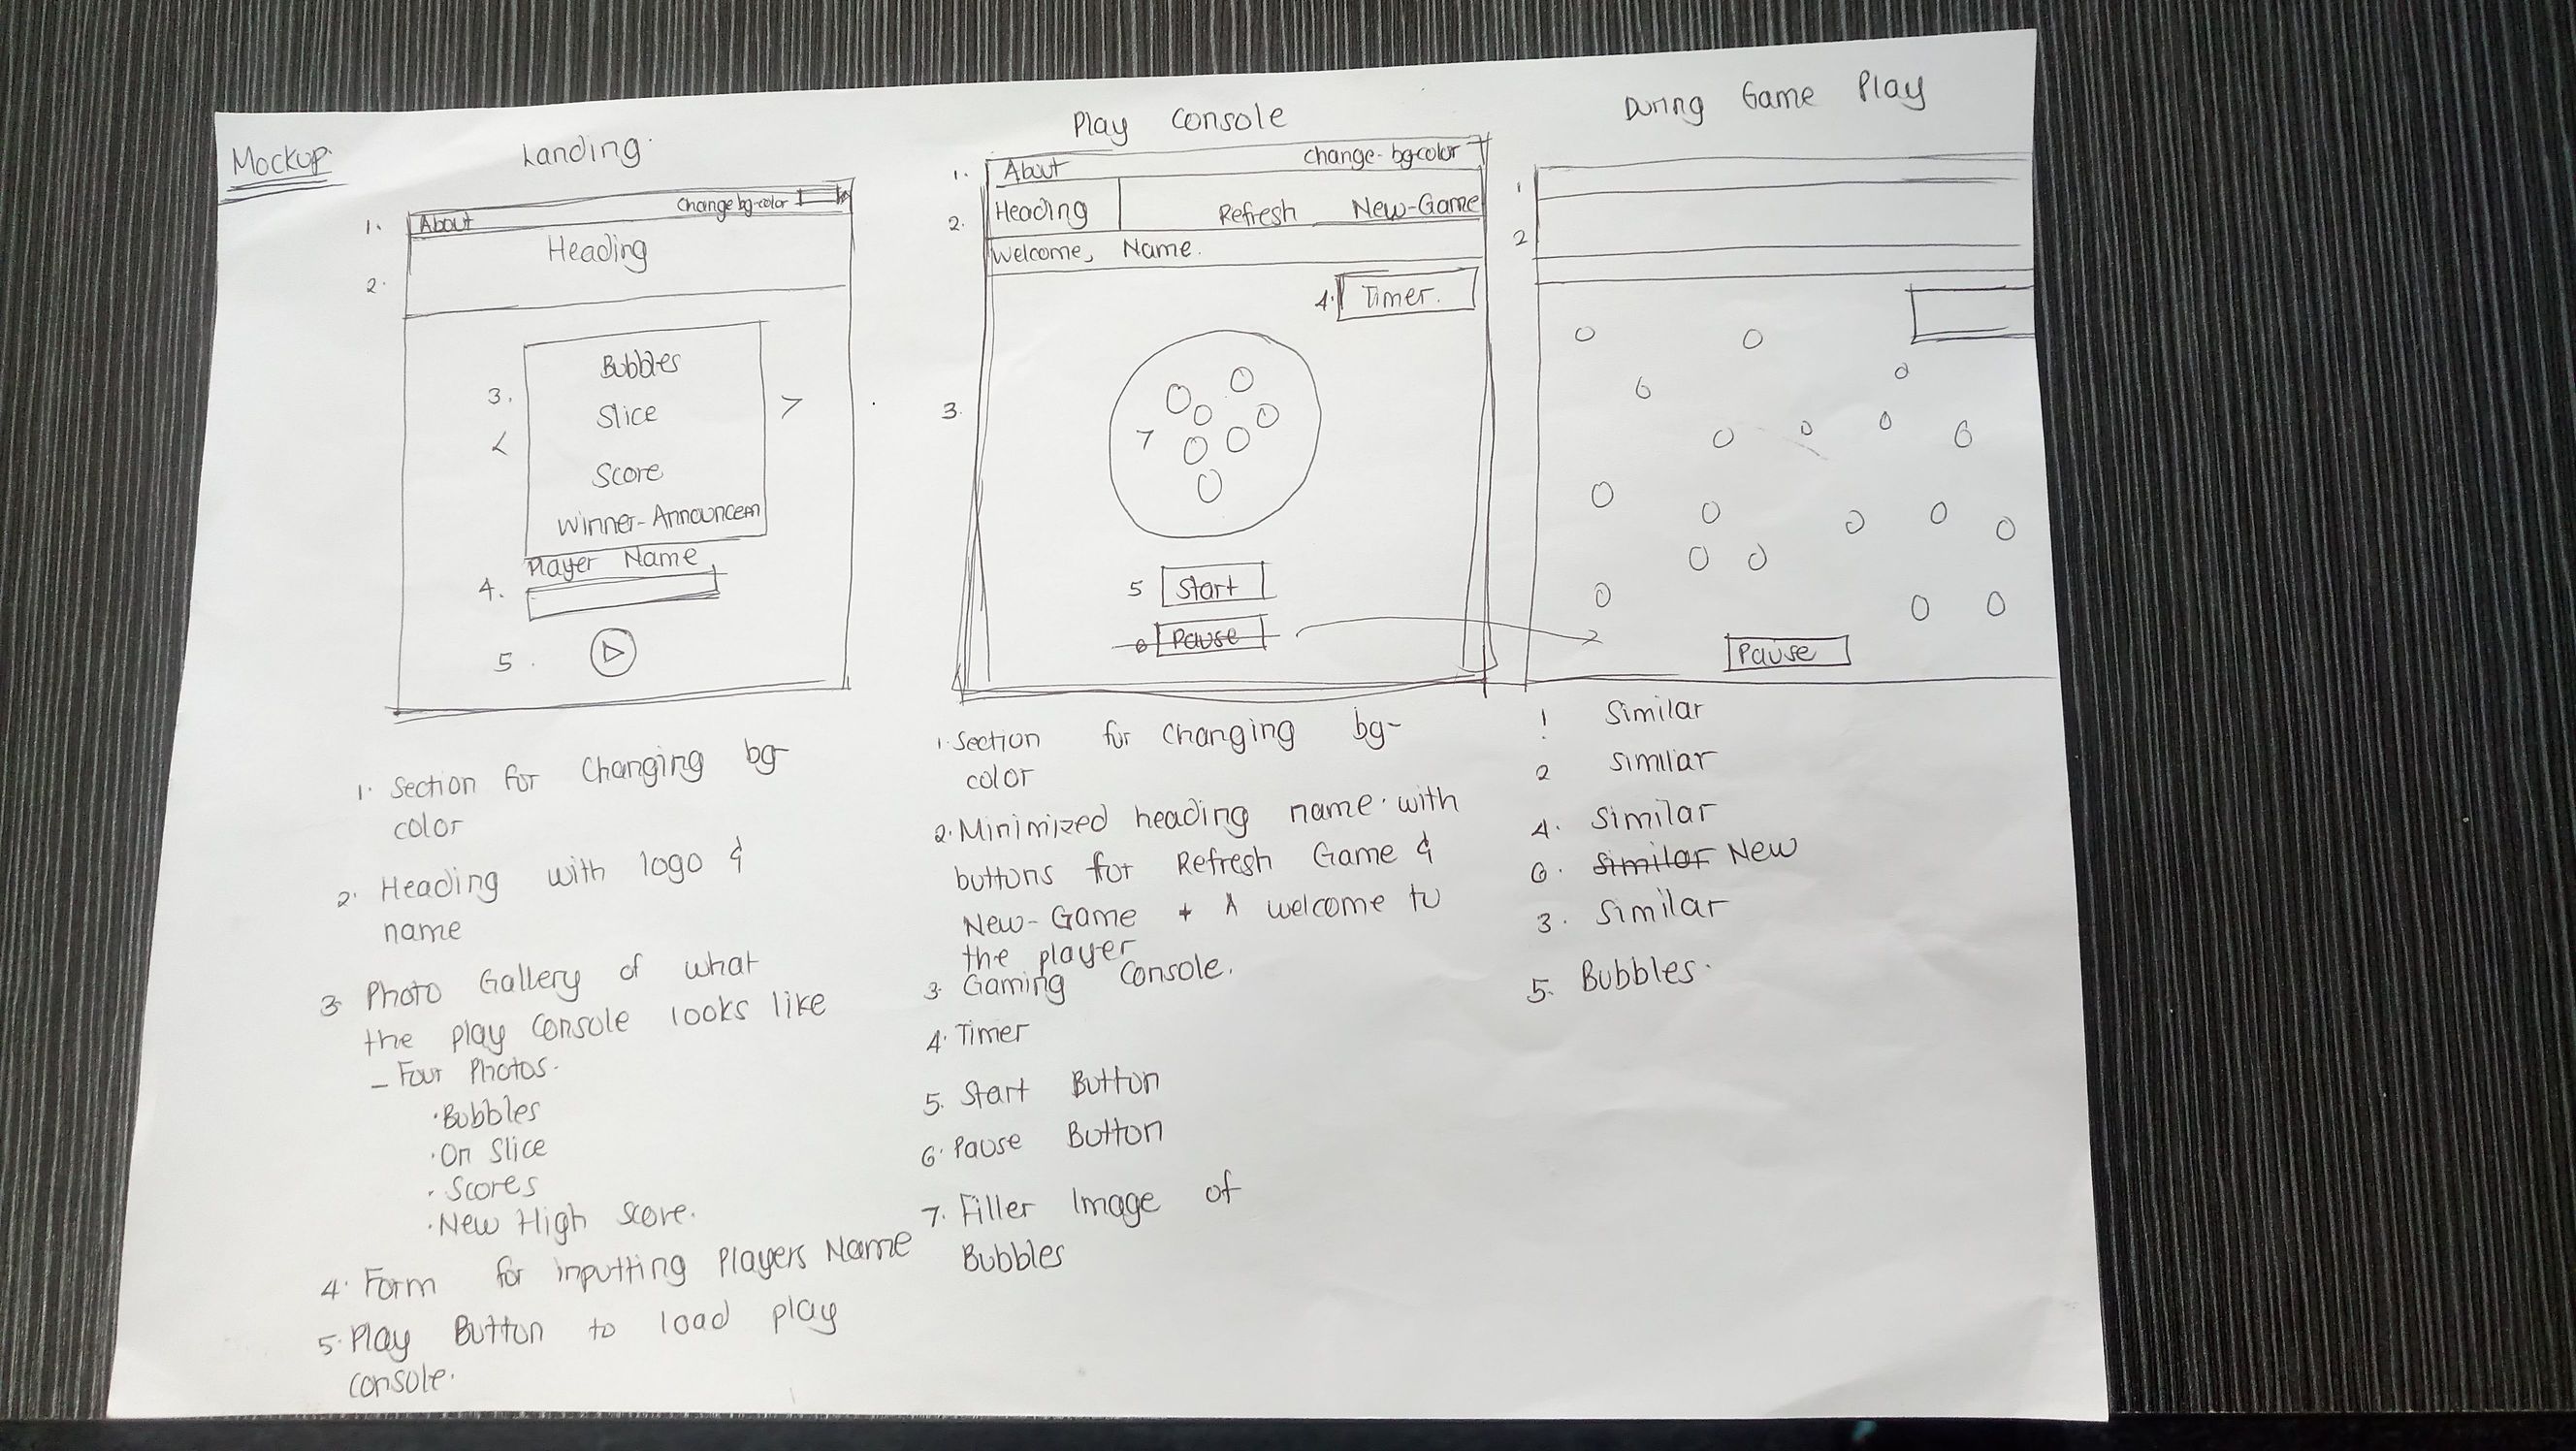 Mockup
Landing
1. About Change bg-color
Heading
2.
Bubbles
3.
Slice
< >
Score
Winner-Announcem
Player Name
4.
5.
1. Section for Changing bg-
color
2. Heading with logo &
name
3. Photo Gallery of what
the play console looks like
- Four Photos.
·Bubbles
·On Slice
·Scores
·New High Score.
4. Form for inputting Players Name
5. Play Button to load play
console.
Play Console
1. About Change-bgcolor
2. Heading Refresh New-Game
Welcome, Name.
4. Timer.
3.
7
5 Start
6 Pause
1. Section for Changing bg-
color
2. Minimized heading name with
buttons for Refresh Game &
New-Game + A welcome to
the player
3. Gaming Console.
4. Timer
5. Start Button
6. Pause Button
7. Filler Image of
Bubbles
During Game Play
1
2
Pause
1 Similar
2 Similar
4. Similar
6. Similar New
3. Similar
5. Bubbles.